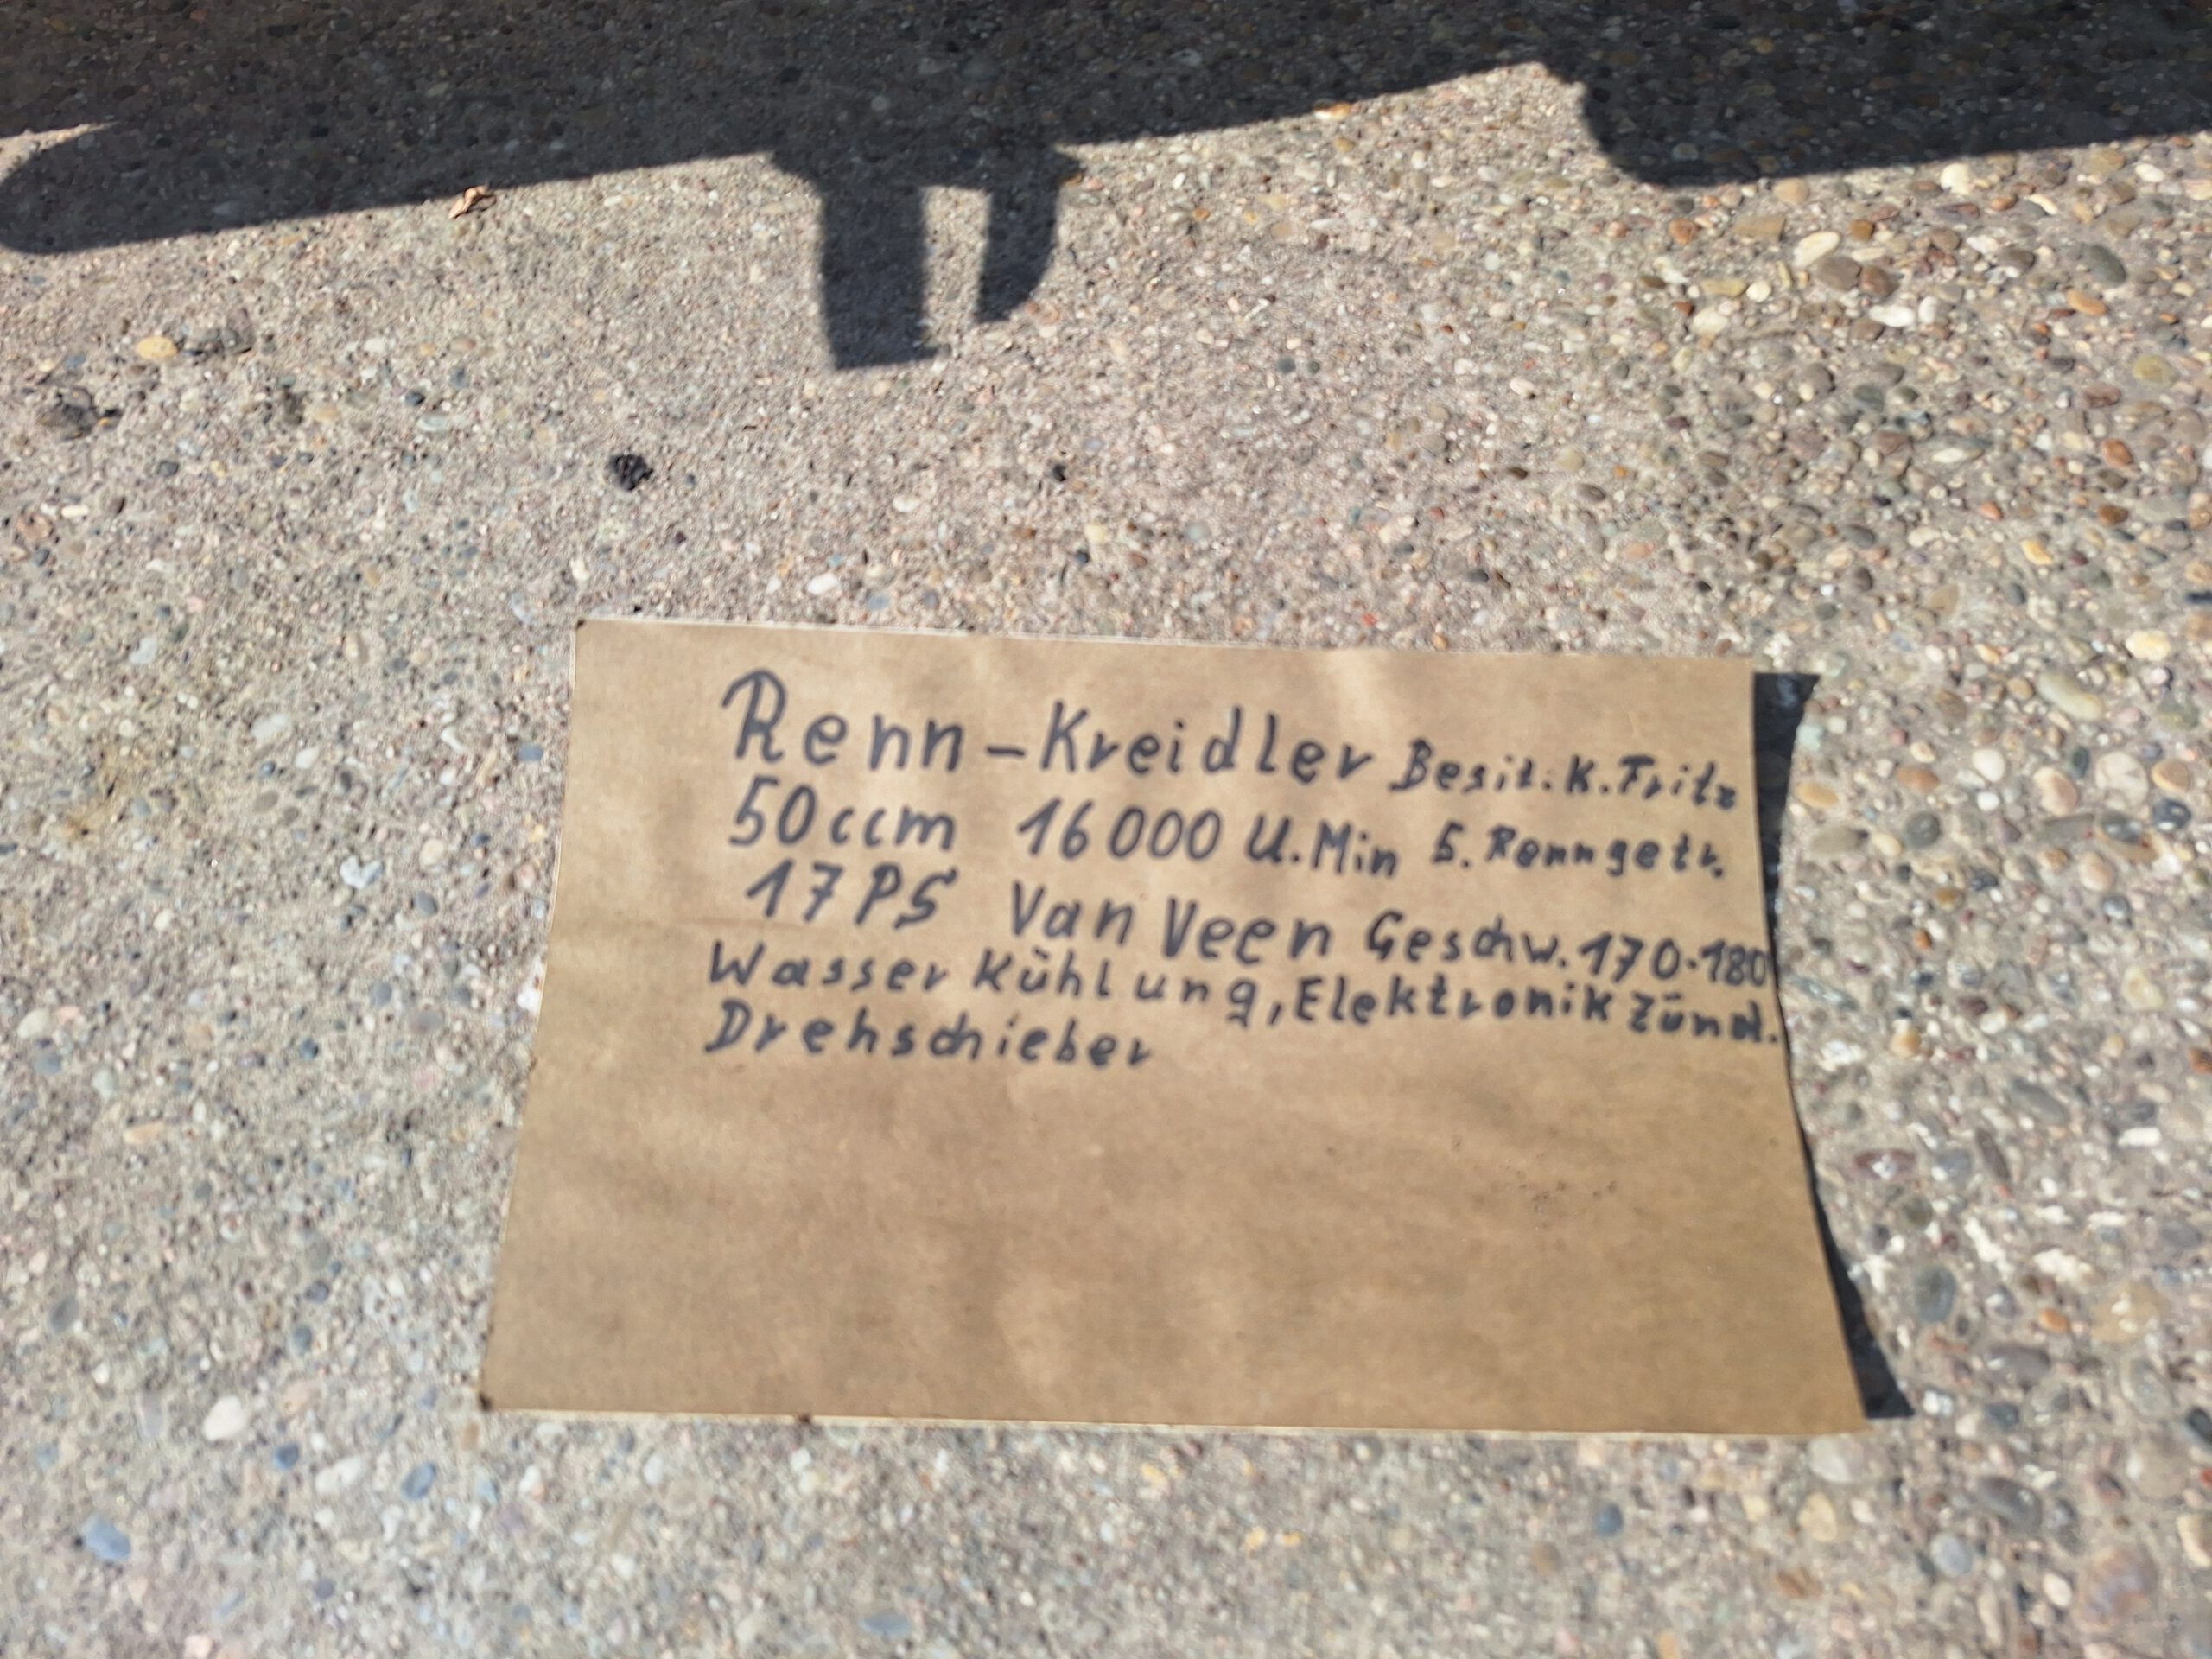 Renn-Kreidler Besit. K. Fritz
50ccm 16000 U.Min 5. Renngetr.
17PS Van Veen Geschw. 170-180
Wasser Kühlung, Elektronik Zünd.
Drehschieber